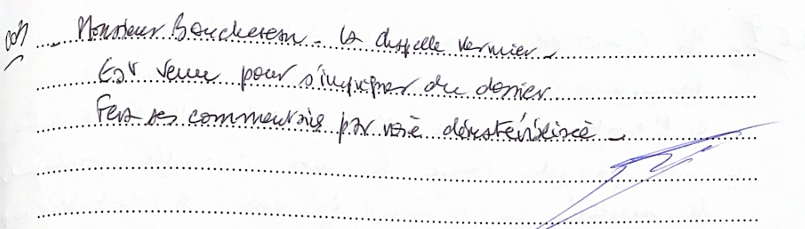 Monsieur Bouchereau - La chapelle Vermier -
Est venu pour s'imprégner du dossier
Fera ses commentaires par voie dématérialisée -